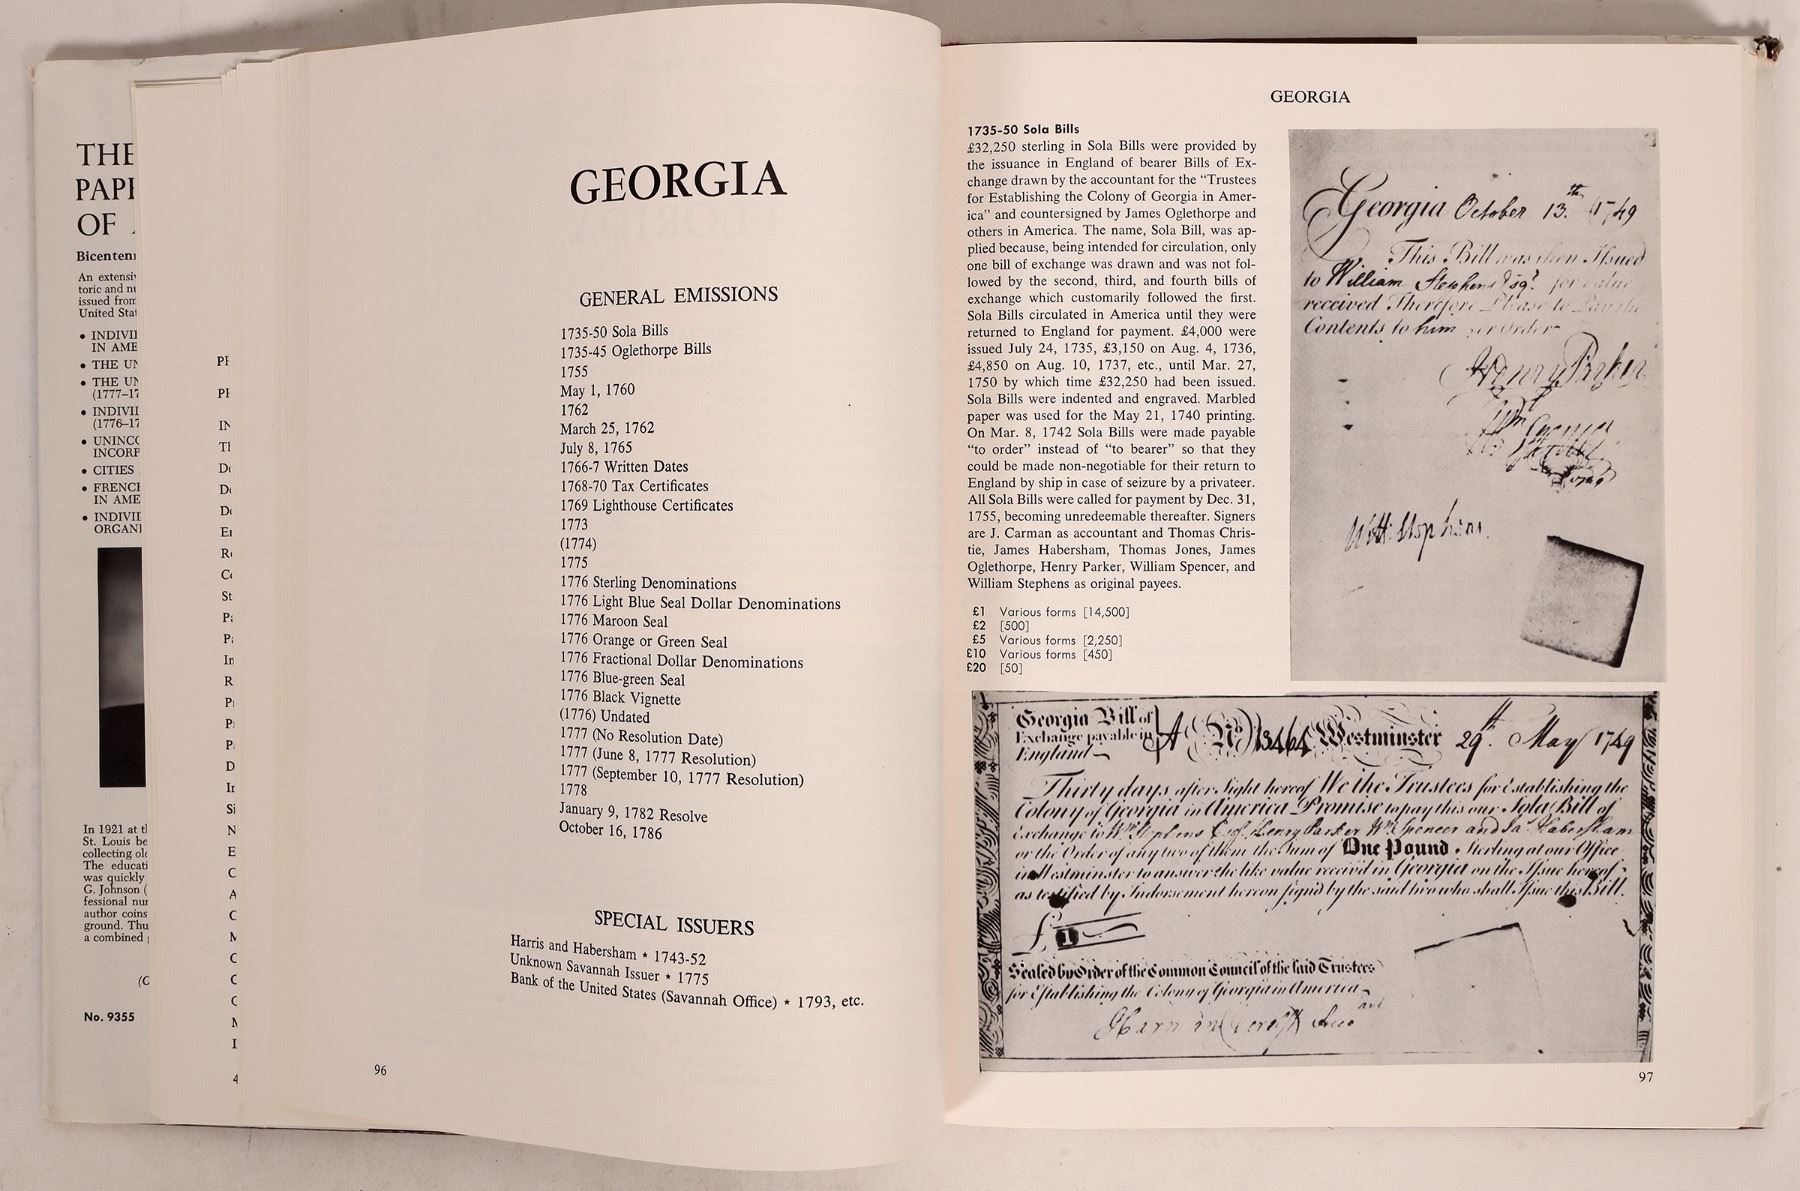 THE
PAP
OF
Bicenten
An extensi
toric and
issued from
United Sta
• INDIVI
IN AME
• THE
• THE
(1777–17
• INDIVI
(1776–17
• UNINC
INCORP
• CITIES
• FRENC
IN AME
• INDIVI
ORGAN
In 1921 at
St. Louis be
collecting
The educat
was quickly
G. Johnson (
fessional
author coins
ground. Thu
a combined
No. 9355
GEORGIA
GENERAL EMISSIONS
1735-50 Sola Bills
1735-45 Oglethorpe Bills
1755
May 1, 1760
1762
March 25, 1762
July 8, 1765
1766-7 Written Dates
1768-70 Tax Certificates
1769 Lighthouse Certificates
1773
(1774)
1775
1776 Sterling Denominations
1776 Light Blue Seal Dollar Denominations
1776 Maroon Seal
1776 Orange or Green Seal
1776 Fractional Dollar Denominations
1776 Blue-green Seal
1776 Black Vignette
(1776) Undated
1777 (No Resolution Date)
1777 (June 8, 1777 Resolution)
1777 (September 10, 1777 Resolution)
1778
January 9, 1782 Resolve
October 16, 1786
SPECIAL ISSUERS
Harris and Habersham ⋆ 1743-52
Unknown Savannah Issuer ⋆ 1775
Bank of the United States (Savannah Office) ⋆ 1793, etc.
96
GEORGIA
1735-50 Sola Bills
£32,250 sterling in Sola Bills were provided by
the issuance in England of bearer Bills of Ex-
change drawn by the accountant for the “Trustees
for Establishing the Colony of Georgia in Amer-
ica” and countersigned by James Oglethorpe and
others in America. The name, Sola Bill, was ap-
plied because, being intended for circulation, only
one bill of exchange was drawn and was not fol-
lowed by the second, third, and fourth bills of
exchange which customarily followed the first.
Sola Bills circulated in America until they were
returned to England for payment. £4,000 were
issued July 24, 1735, £3,150 on Aug. 4, 1736,
£4,850 on Aug. 10, 1737, etc., until Mar. 27,
1750 by which time £32,250 had been issued.
Sola Bills were indented and engraved. Marbled
paper was used for the May 21, 1740 printing.
On Mar. 8, 1742 Sola Bills were made payable
“to order” instead of “to bearer” so that they
could be made non-negotiable for their return to
England by ship in case of seizure by a privateer.
All Sola Bills were called for payment by Dec. 31,
1755, becoming unredeemable thereafter. Signers
are J. Carman as accountant and Thomas Chris-
tie, James Habersham, Thomas Jones, James
Oglethorpe, Henry Parker, William Spencer, and
William Stephens as original payees.
£1 Various forms [14,500]
£2 [500]
£5 Various forms [2,250]
£10 Various forms [450]
£20 [50]
Georgia October 13.th 1749
This Bill was then Issued
to William Stephens Esqr. for value
received Therefore Please to Pay the
Contents to him or order
Henry Parker
Will: Stephens
Georgia Bill of
Exchange payable in
England
A No. 13464 Westminster 29th. May 1749
Thirty days after Sight hereof We the Trustees for Establishing the
Colony of Georgia in America Promise to pay this our Sola Bill of
Exchange to Wm. Stephens Esqr. Henry Parker Wm. Spencer and Ja. Habersham
or the Order of any two of them the Sum of One Pound Sterling at our Office
in Westminster to answer the like value receiv'd in Georgia on the Issue hereof
as testified by Indorsement hereon sign'd by the said two who shall Issue this Bill.
£ 1
Sealed by Order of the Common Council of the said Trustees
for Establishing the Colony of Georgia in America
97